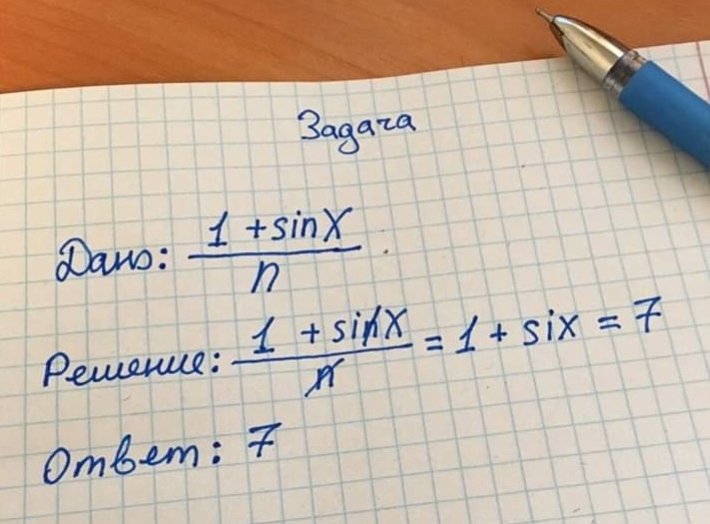 Задача
Дано: (1 + sinX) / n
Решение: (1 + sinX) / n = 1 + six = 7
Ответ: 7